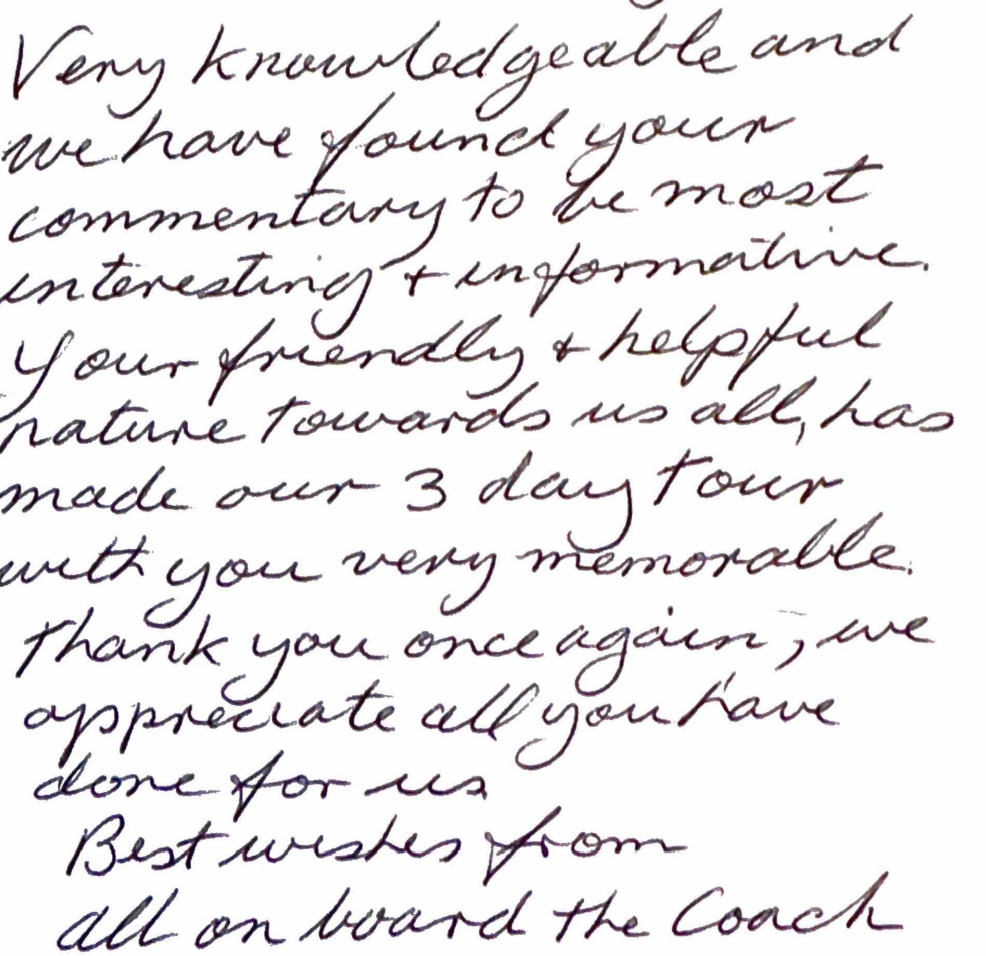 Very knowledgeable and
we have found your
commentary to be most
interesting + informative.
Your friendly + helpful
nature towards us all, has
made our 3 day tour
with you very memorable.
Thank you once again, we
appreciate all you have
done for us
Best wishes from
all on board the Coach